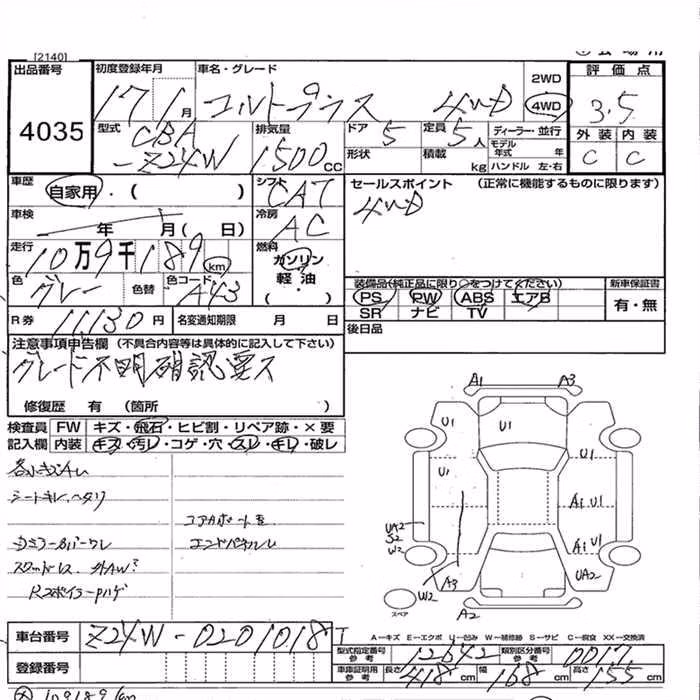 [2140]
出品番号
4035
初度登録年月
17 1月
車名・グレード
コルトプラス 4WD
2WD
4WD
評価点
3.5
外装 内装
C C
型式
CBA
-Z24W
排気量
1500cc
ドア 5
定員 5人
ディーラー・並行
モデル年式 年
形状
積載 kg
ハンドル 左・右
車歴
自家用・( )
シフト
CAT
セールスポイント (正常に機能するものに限ります)
4WD
車検
年 月( 日)
冷房
AC
走行
10万9千189km
燃料
ガソリン
軽油
( )
色
グレー
色替
色コード
A43
装備品(純正品に限り○をつけてください)
PS PW ABS エアB
SR ナビ TV
新車保証書
有・無
R券 11,130円
名変通知期限 月 日
後日品
注意事項申告欄 (不具合内容等は具体的に記入して下さい)
グレード不明確認要ス
修復歴 有 (箇所 )
検査員記入欄
FW キズ・飛石・ヒビ割・リペア跡・×要
内装 キズ・汚レ・コゲ・穴・スレ・キレ・破レ
各小キズAU
シートキレ、ヘタリ
エンドパネルU
A1 A3
U1
U1
U1
A1 U1
A1 U1
UA2
S2
W2
W2
A3
UA2
A2
スペア
A―キズ E―エクボ U―凹み W―補修跡 S―サビ C―腐食 XX―交換済
車台番号
Z24W-0201018
登録番号
型式指定番号 参考
12642
類別区分番号 参考
0017
車庫証明用 参考
長さ 418cm 幅 168cm 高さ 155cm
109189km